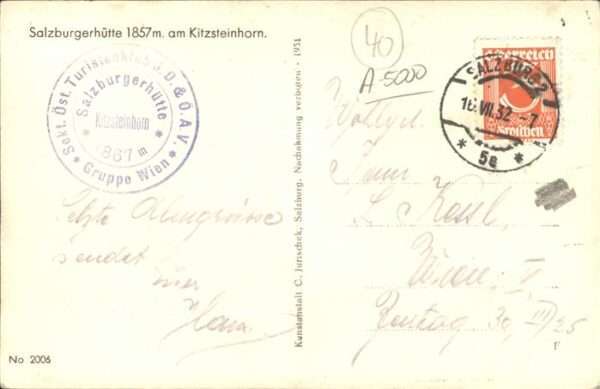 Salzburgerhütte 1857m. am Kitzsteinhorn.
Sekt. Öst. Turistenklub d. D. & Ö. A. V.
Salzburgerhütte
Kitzsteinhorn
1867 m
Gruppe Wien
Letzte Almgrüsse
sendet
Kunstanstalt C. Jurischek, Salzburg. Nachahmung verboten - 1931
40
A-5000
Österreich
5
Groschen
SALZBURG 2
16.VII.32 -7
* 5e *
Wohlgeb.
L. Kessl,
Wien
III/25
No 2006